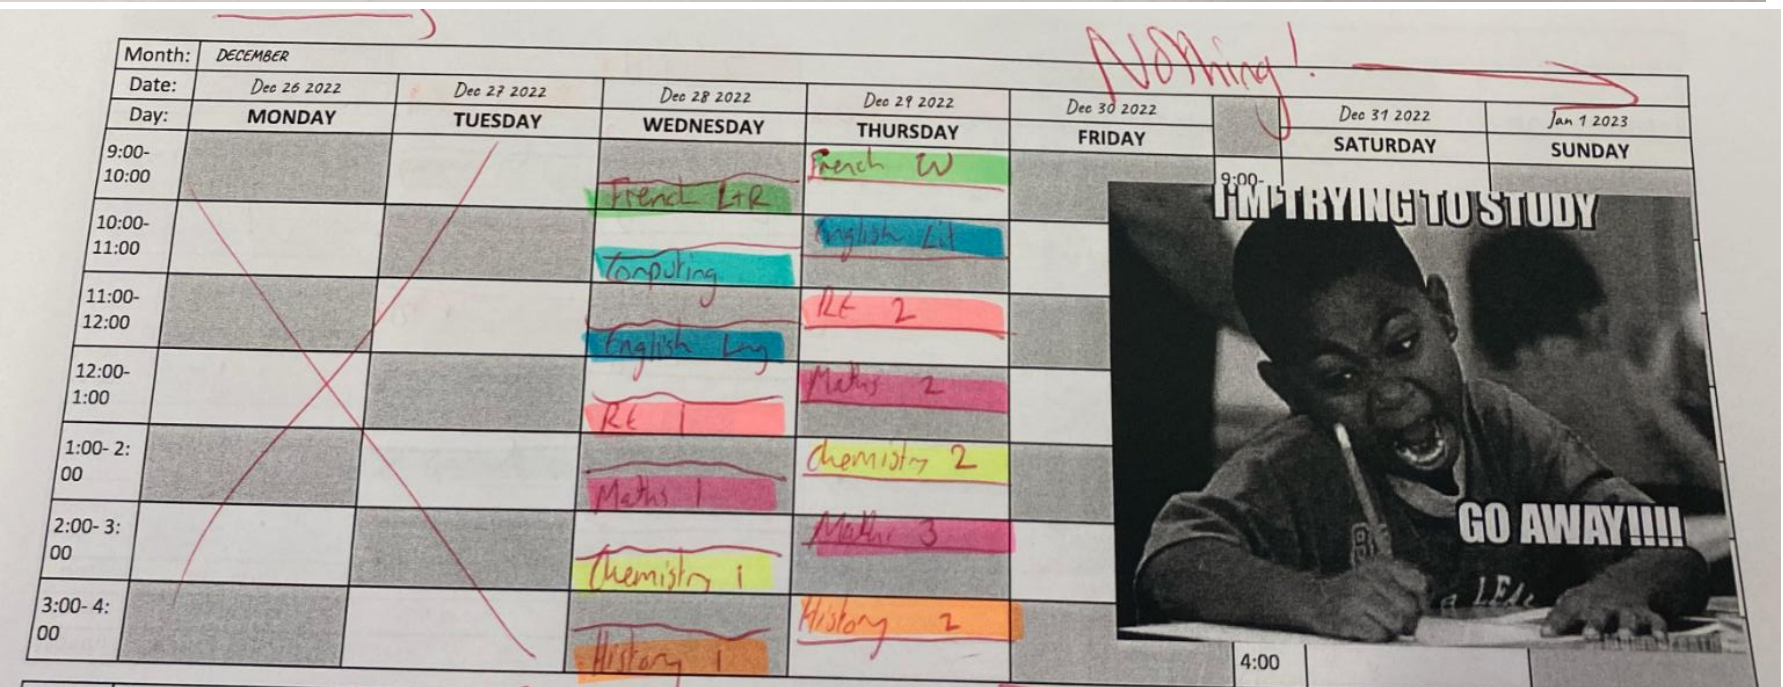 Nothing!
Month: DECEMBER
Date: Dec 26 2022 Dec 27 2022 Dec 28 2022 Dec 29 2022 Dec 30 2022 Dec 31 2022 Jan 1 2023
Day: MONDAY TUESDAY WEDNESDAY THURSDAY FRIDAY SATURDAY SUNDAY
9:00-
10:00
French L+R
French W
9:00-
10:00-
11:00
Computing
English Lit
11:00-
12:00
English Lang
RE 2
12:00-
1:00
RE 1
Maths 2
1:00- 2:
00
Maths 1
Chemistry 2
2:00- 3:
00
Chemistry 1
Maths 3
3:00- 4:
00
History 1
History 2
4:00
I'M TRYING TO STUDY
GO AWAY!!!!